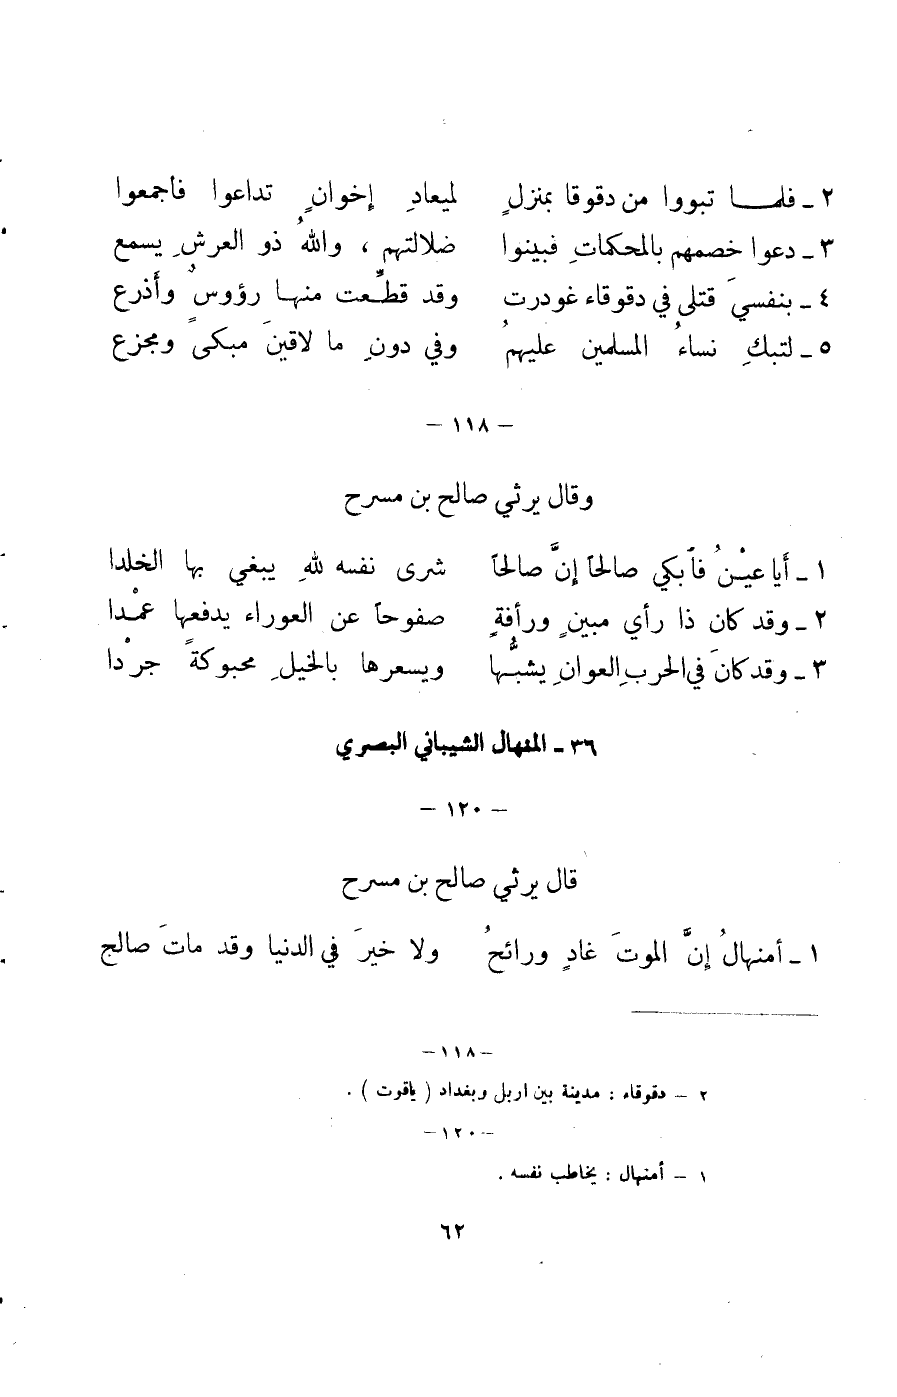 ٢ ـ فلمـــا تبووا من دقوقا بمنزلٍ لميعادِ إخوانٍ تداعوا فأجمعوا
٣ ـ دعوا خصمهم بالمحكماتِ فبينوا ضلالتهم ، واللهُ ذو العرشِ يسمع
٤ ـ بنفسيَ قتلى في دقوقاء غودرت وقد قطِّعت منهـا رؤوسٌ وأذرع
٥ ـ لتبكِ نساءُ المسلمين عليهمُ وفي دونِ ما لاقينَ مبكىً ومجزع
— ١١٨ —
وقال يرثي صالح بن مسرح
١ ـ أيا عيْـنُ فأبكي صالحاً إنَّ صالحاً شرى نفسه للهِ يبغي بها الخلدا
٢ ـ وقد كان ذا رأي مبينٍ ورأفةٍ صفوحاً عن العوراء يدفعها عمْـدا
٣ ـ وقد كانَ في الحربِ العوانِ يشبُّها ويسعرها بالخيلِ محبوكةً جرْدا
٣٦ ـ المنهال الشيباني البصري
— ١٢٠ —
قال يرثي صالح بن مسرح
١ ـ أمنهالُ إنَّ الموتَ غادٍ ورائحُ ولا خيرَ في الدنيا وقد ماتَ صالح
— ١١٨ —
٢ — دقوقاء : مدينة بين اربل وبغداد ( ياقوت ) .
— ١٢٠ —
١ — أمنهال : يخاطب نفسه .
٦٢